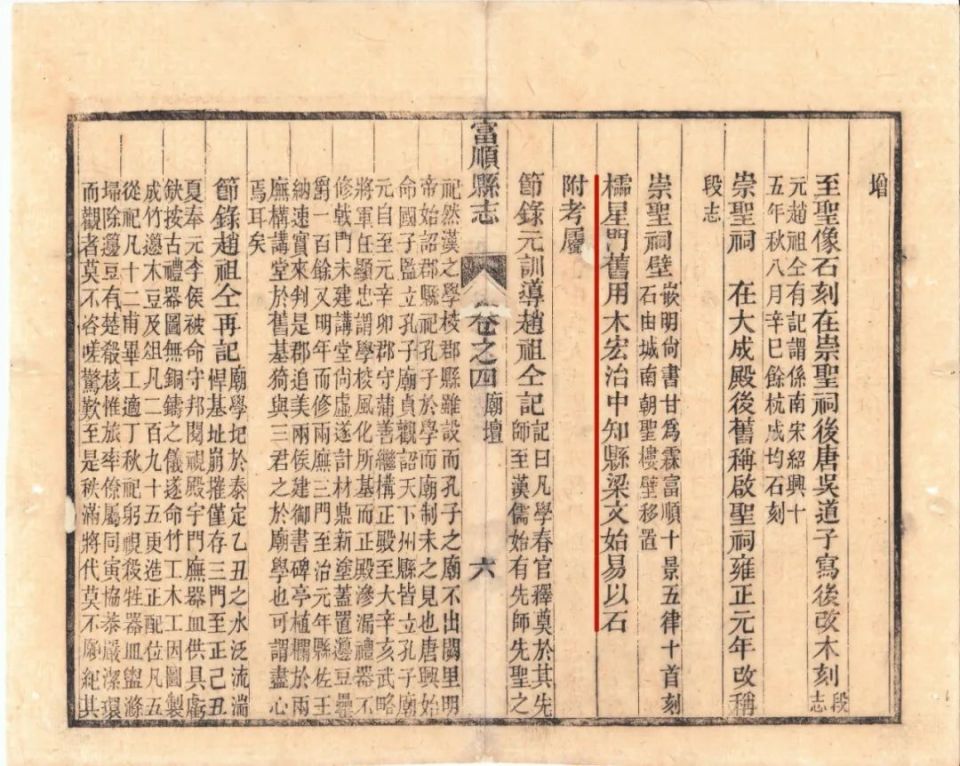 增
至聖像石刻在崇聖祠後唐吳道子寫後改木刻段志
元趙祖仝有記謂係南宋紹興十
五年秋八月辛巳餘杭成均石刻
崇聖祠 在大成殿後舊稱啟聖祠雍正元年改稱
段志
崇聖祠壁嵌明尙書甘為霖富順十景五律十首刻
石由城南朝聖樓壁移置
櫺星門舊用木宏治中知縣梁文始易以石
附考屬
節錄元訓導趙祖仝記記曰凡學春官釋奠於其先
師至漢儒始有先師先聖之
富順縣志 卷之四 廟壇 六
祀然漢之學校郡縣雖設而孔子之廟不出闕里明
帝始詔郡縣祀孔子於學而廟制未之見也唐興始
命國子監立孔子廟貞觀詔天下州縣皆立孔子廟
元自至元辛卯郡守蒲善繼構正殿至大辛亥武略
將軍任顯忠謂學校風化所基而正殿滲漏禮器不
修戟門未建講堂尙虛遂計材鼎新塗蓋置籩豆罍
爵一百餘又明年而修兩廡三門至治元年縣佐王
納速實來判是郡追美兩侯建御書碑亭植欄於兩
廡構講堂於舊基猗與三君之於廟學也可謂盡心
焉耳矣
節錄趙祖仝再記廟學圮於泰定乙丑之水泛流湍
悍基址崩摧僅存三門至正己丑
夏奉元李侯被命守邦閱視殿宇門廡器皿供具虛
缺按古禮器圖無銅鑄之儀遂命竹工木工因圖製
成竹籩木豆及俎凡二百九十五更造正配位凡五
從祀凡十二甫畢工適丁秋祀躬視殺牲器皿盥滌
埽除籩豆有楚殽核惟旅率僚屬同寅協恭嚴潔環
而觀者莫不咨嗟驚歎至是秩滿將代莫不願紀其